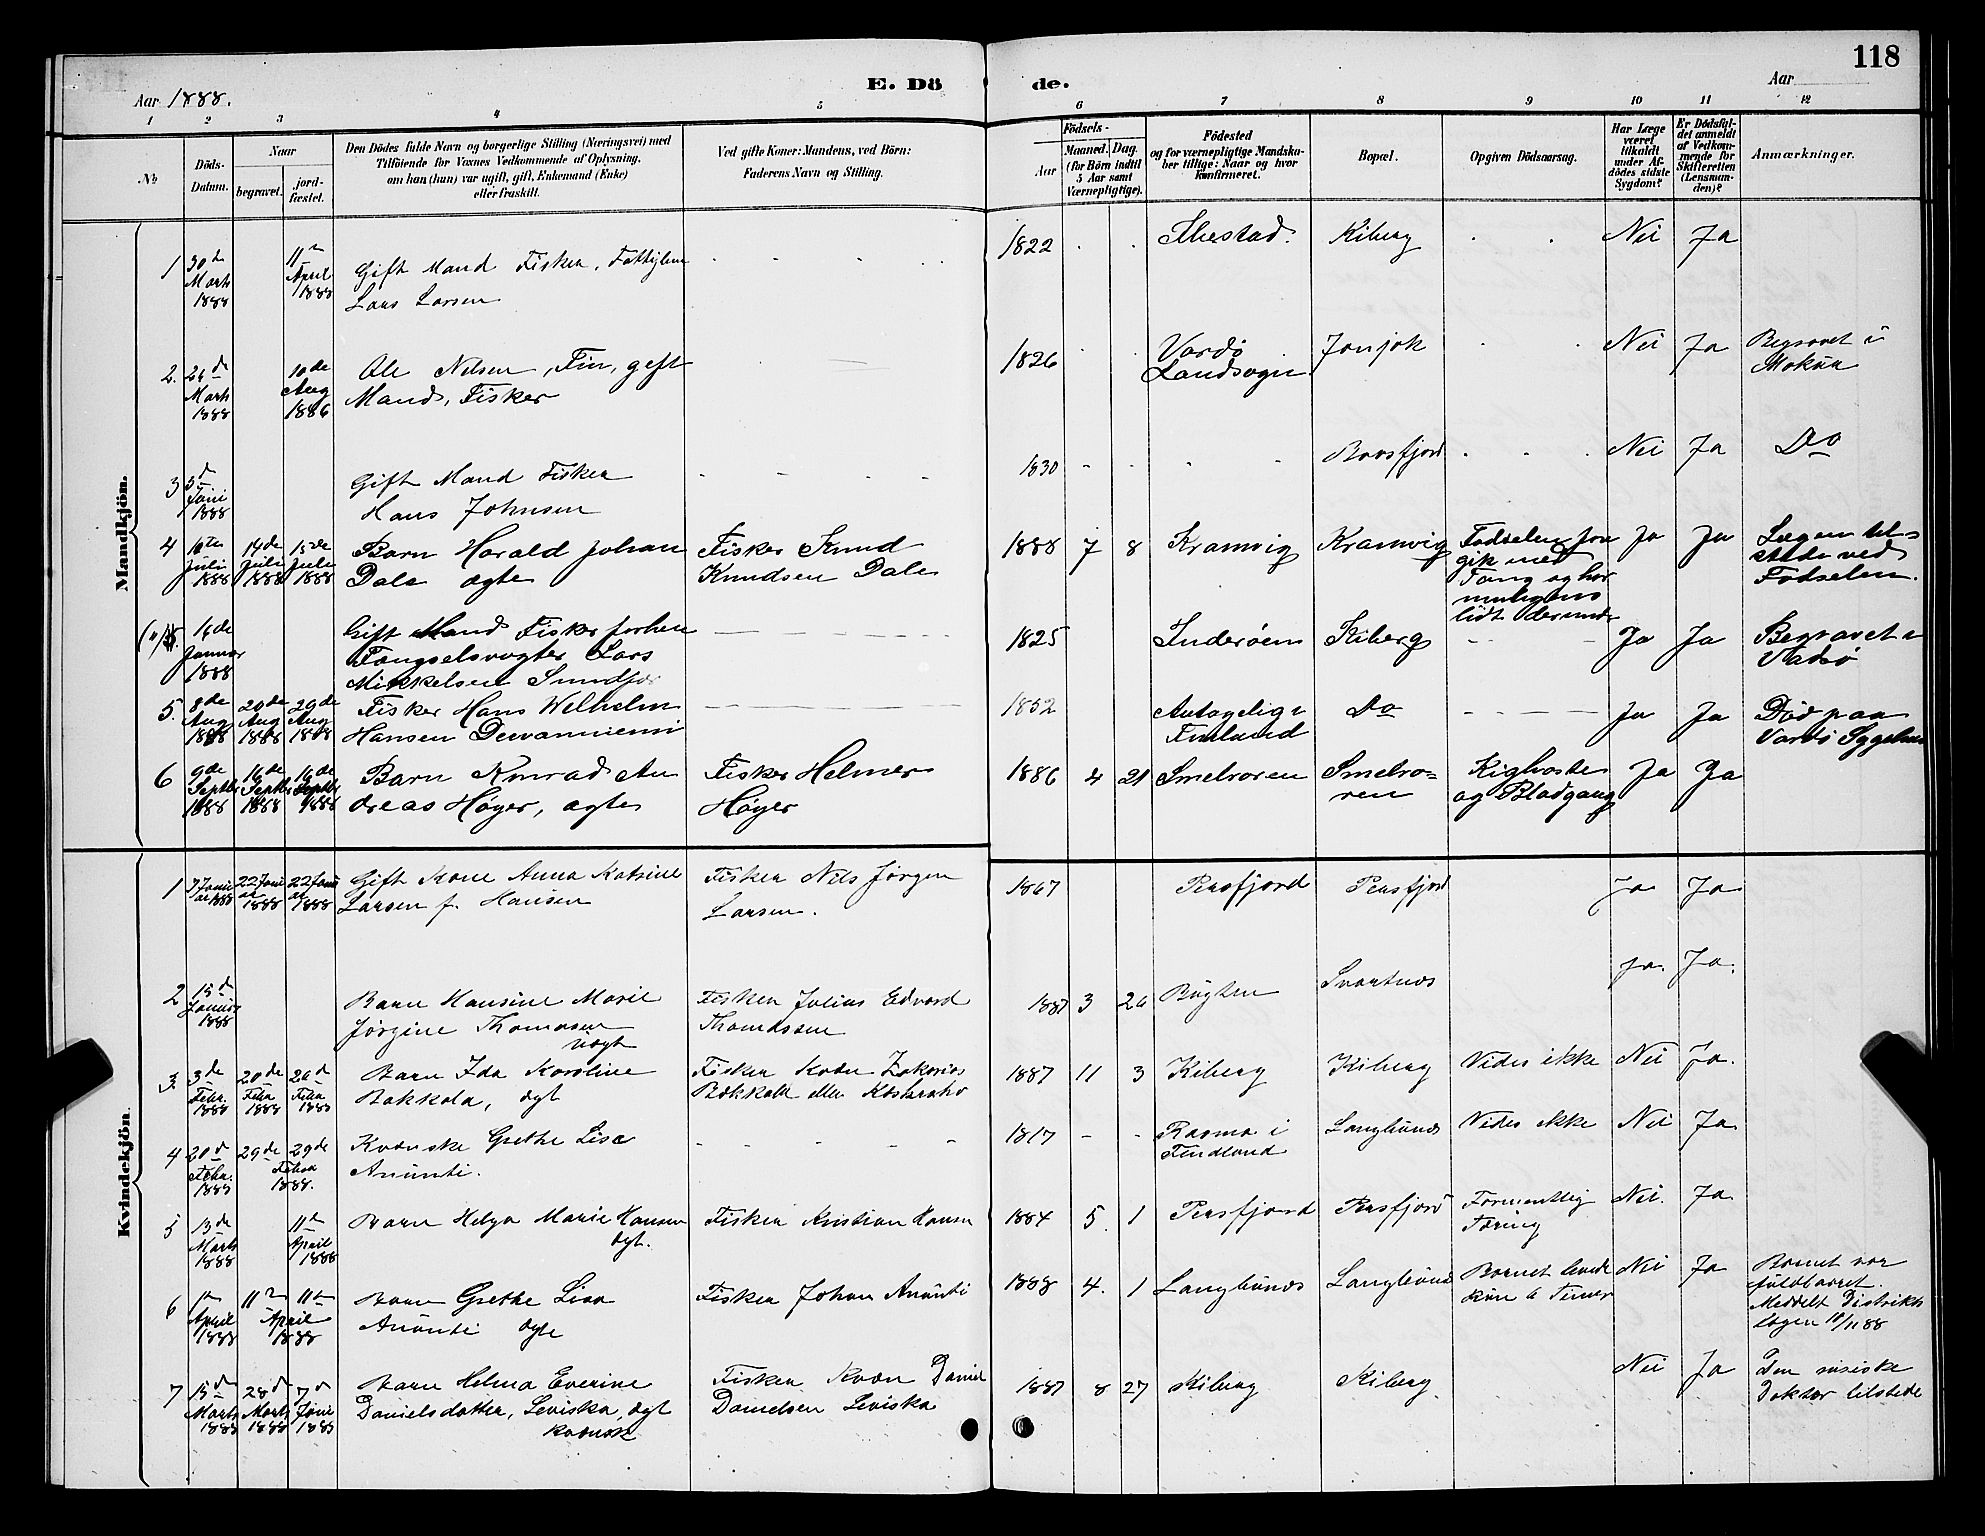 118
E. Dö de.
Aar 1888.
Aar
1 2 3 4 5 6 7 8 9 10 11 12
No
Döds-Datum.
Naar
begravet.
jord-fæstet.
Den Dödes fulde Navn og borgerlige Stilling (Næringsvei) med
Tilföiende for Voxnes Vedkommende af Oplysning,
om han (hun) var ugift, gift, Enkemand (Enke)
eller fraskilt.
Ved gifte Koner: Mandens, ved Börn:
Faderens Navn og Stilling.
Födsels-
Aar
Maaned. Dag.
(for Börn indtil
5 Aar samt
Værnepligtige).
Födested
og for værnepligtige Mandska-
ber tillige: Naar og hvor
konfirmeret.
Bopæl.
Opgiven Dödsaarsag.
Har Læge
været
tilkaldt
under Af-
dödes sidste
Sygdom?
Er Dödsfal-
det anmeldt
af Vedkom-
mende for
Skifteretten
(Lensman-
den)?
Anmærkninger.
Mandkjön.
1 30te Marts 1888 11te April 1888 Gift Mand Fisker, Fattiglem
Lars Larsen
1822 Kiberg Nei Ja
2. Marts 1888 10de Aug 1886 Ole Nilsen, Fin, gift
Mand, Fisker
1826 Vardö Landsogn Nei Ja Begravet i
3 5d Juni 1888 Gift Mand Fisker
Hans Johnsen
1830 Nei Ja Do
4 10de Juli 1888 14de Juli 1888 15de Juli 1888 Barn Harald Johan
Dale ægte
Fisker Knud
Knudsen Dale
1888 7 8 Kramvig Kramvig Fødselen fore
gik med
Tang og har
muligens
lidt derunder
Ja Ja Lægen til-
stede ved
Fødselen.
16de Januar 1888 Gift Mand Fisker forhen
Fængselsvogter Lars
Mikkelsen Sundfør
1825 Inderøen Kiberg Ja Ja Begravet i
Vadsø
5. 8de Aug 1888 20de Aug 1888 29de Aug 1888 Fisker Hans Wilhelm
Hansen
1852 Antagelig i
Finland
Do Ja Ja Død paa
Vardö Sygehus
6 9de Septbr 1888 16de Septbr 1888 16de Septbr 1888 Barn Konrad An
dreas Høyer, ægte
Fisker Helmer
Høyer
1886 4 21 Smelroren Smelro-
ren
Kighoste
og Blodgang
Ja Ja
Kvindekjön.
1 Januar 1888 22 Januar 1888 22 Januar 1888 Gift Kone Anna Katrine
Larsen f. Hansen
Fisker Nils Jørgen
Larsen.
1867 Persfjord Persfjord Ja Ja
2 15d Januar 1888 Barn Hansine Marie
Jørgine Thomasen
uægt
Fisker Julius Edvard
Thomassen
1887 3 26 Bugten Svartnæs Ja. Ja.
3. 3de Febr. 1888 20de Febr 1888 26d Febr 1888 Barn Ida Karoline
Bakkala, ægt
Fisker Kvæn Zakarias
Bakkala eller
1887 11 3 Kiberg Kiberg Vides ikke Nei Ja.
4 20d Febr. 1888 29de 29de Febr 1888. Kvænske Grethe Lisa
Anünti.
1817 i
Findland
Langbünæs Vides ikke Nei Ja
5 13de Marts 1888 11te April 1888 Barn Helga Marie Hansen
ægt.
Fisker Kristian Hansen
1884 5. 1 Persfjord Persfjord Formentlig
Tæring
Nei. Ja
6 1te April 1888 11te 11te April 1888 Barn Grethe Lisa
Anünti ægte
Fisker Johan Anünti
1888 4. 1 Langbünæs Langbünæs Barnet levede
kun 6 Timer
Nei Ja Barnet var
fuldbaaret.
Meddelt Distrikts
lægen
7 15d Marts 1888 28d Marts 1888 7d Juni 1888 Barn Helma Everine
Danielsdatter, Leviska, ægt
kvænsk
Fisker Kvæn Daniel
Danielsen Leviska
1887 8 27 Kiberg Kiberg. Nei Ja Den russiske
Doktor tilstede